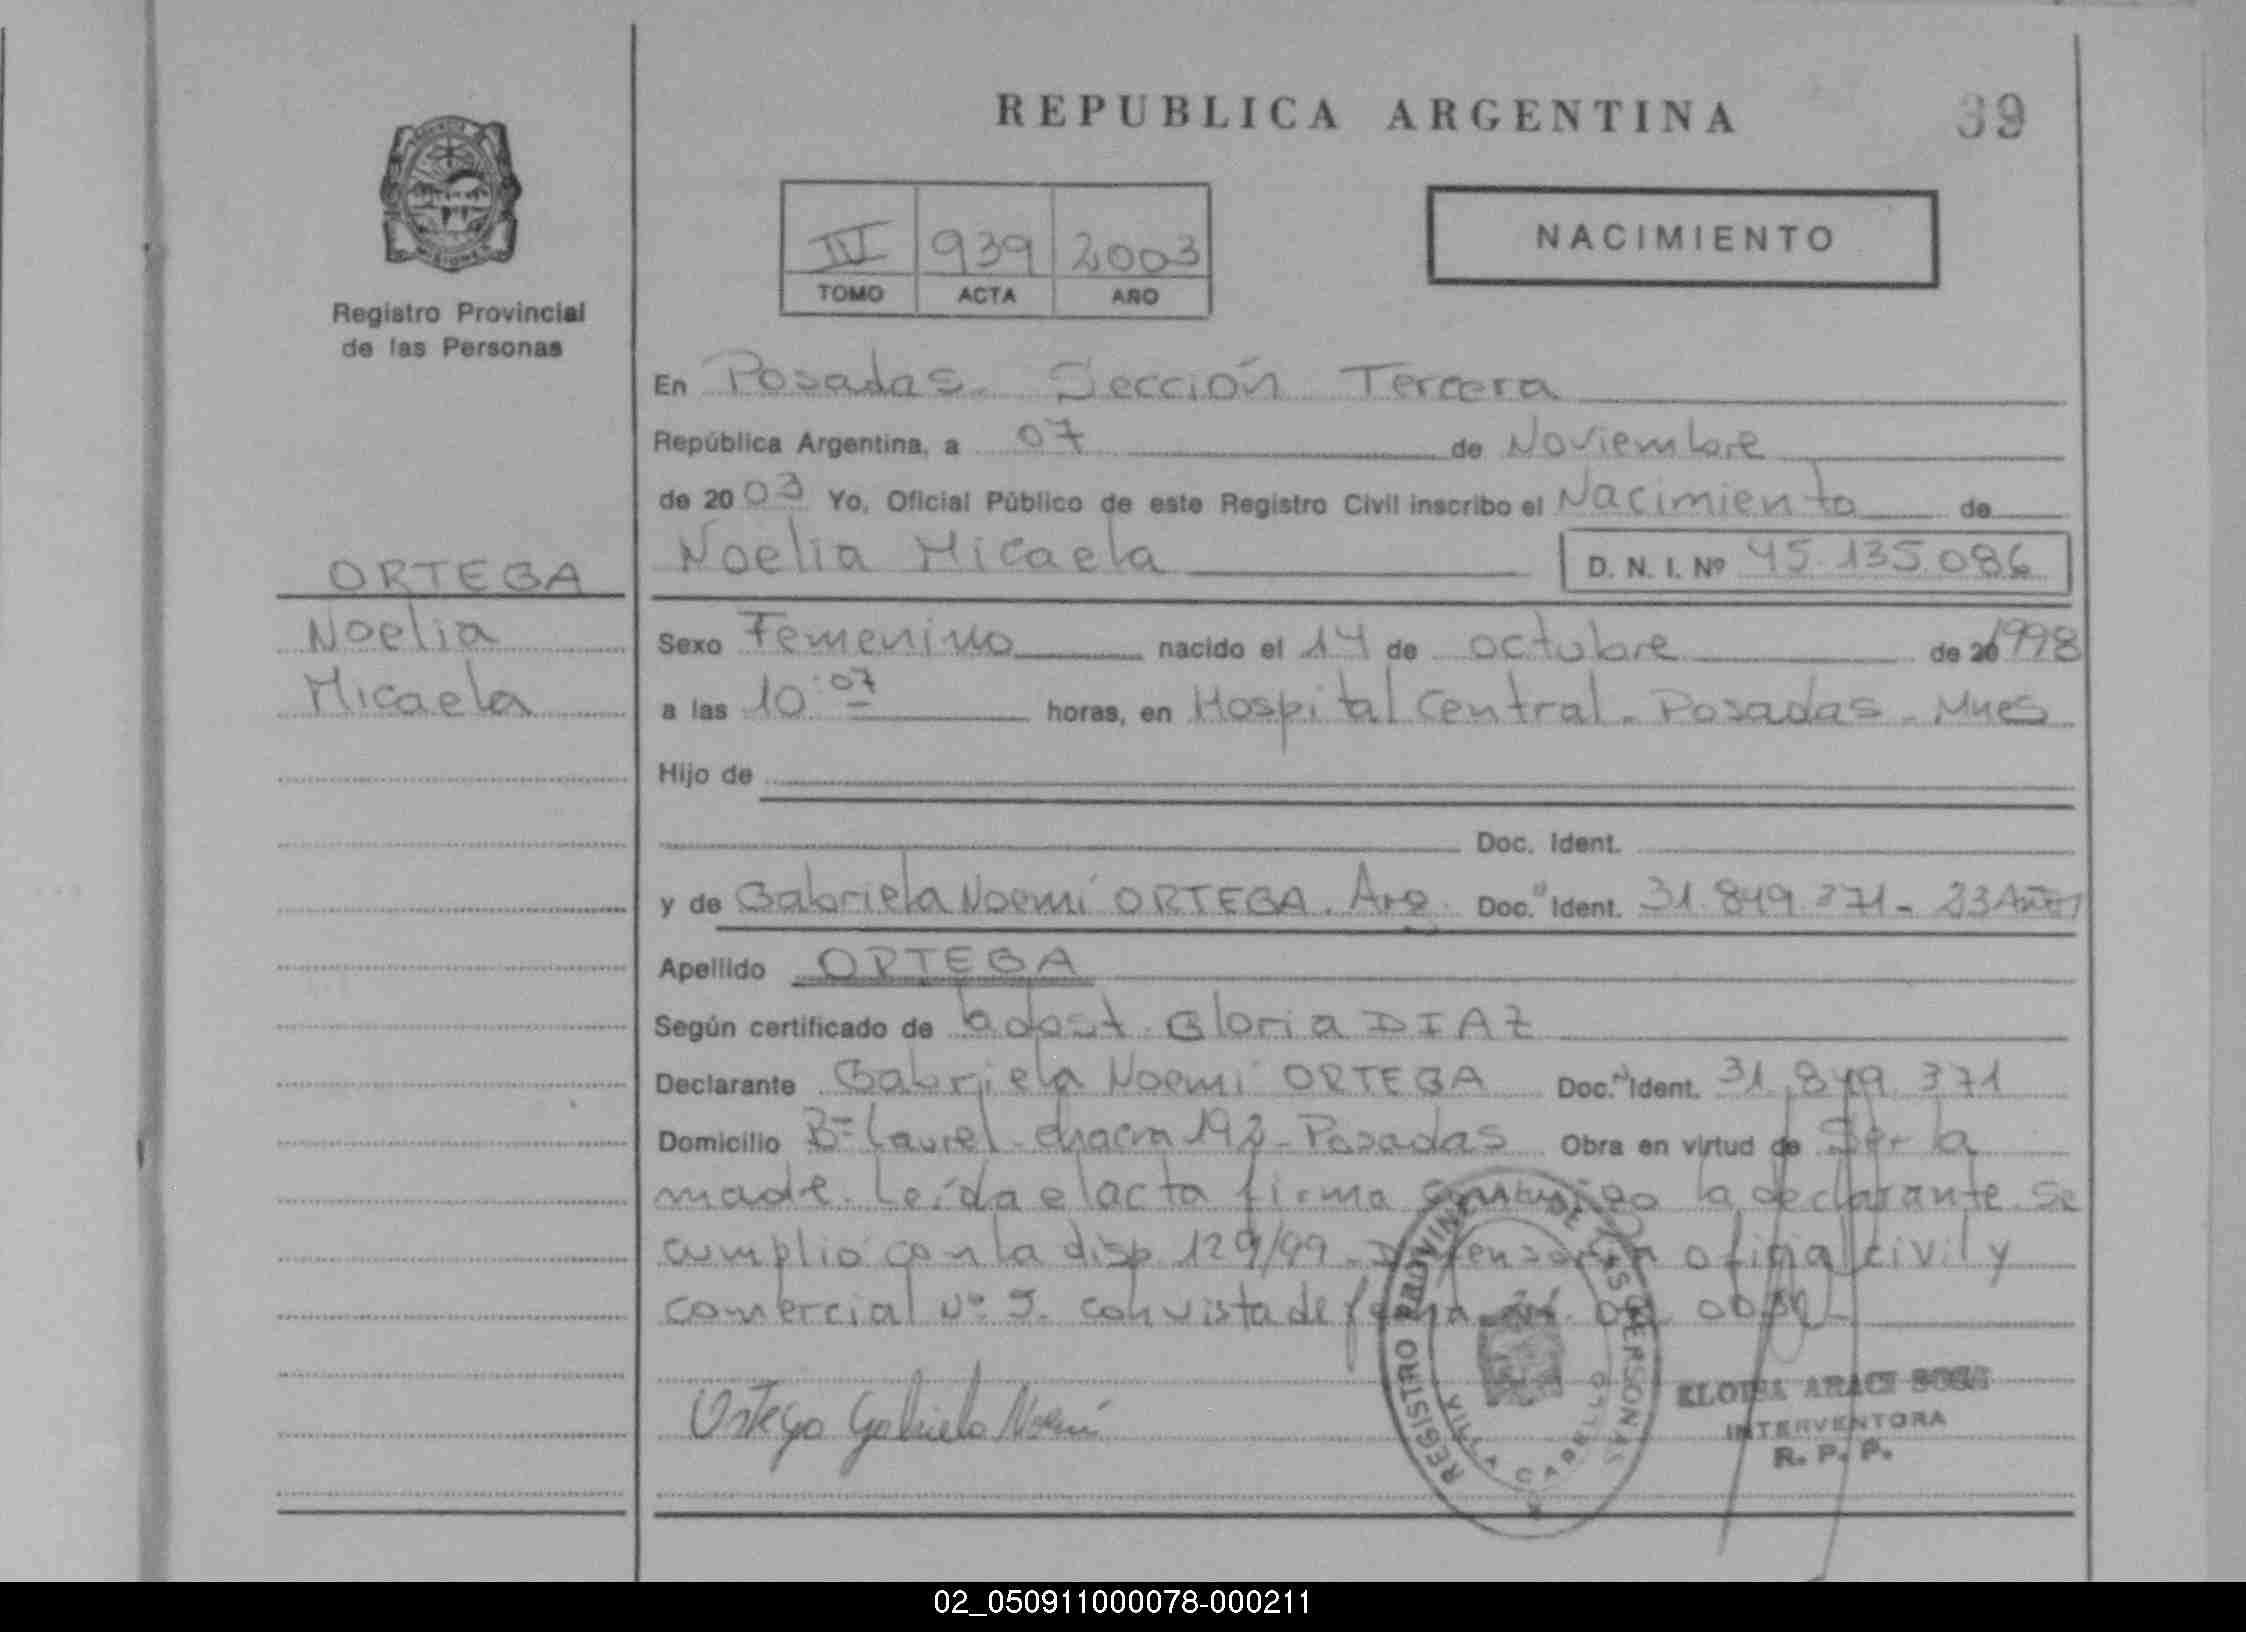 REPUBLICA ARGENTINA
39
Registro Provincial
de las Personas
IV 939 2003
TOMO ACTA AÑO
NACIMIENTO
En Posadas. Sección Tercera
República Argentina, a 07 de Noviembre
de 2003 Yo, Oficial Público de este Registro Civil inscribo el Nacimiento de
Noelia Micaela D. N. I. Nº 45.135.086
ORTEGA
Noelia
Micaela
Sexo Femenino nacido el 14 de octubre de 20 1998
a las 10:07 horas, en Hospital Central. Posadas. Mnes
Hijo de
Doc. Ident.
y de Gabriela Noemí ORTEGA. Arg. Doc. Ident. 31.849.371- 23 Años
Apellido ORTEGA
Según certificado de Gloria DIAZ
Declarante Gabriela Noemí ORTEGA Doc. Ident. 31.849.371
Domicilio Bº Laurel - chacra 192 - Posadas Obra en virtud de Ser la
madre. Leída el acta firma conmigo la declarante. Se
cumplió con la disp. 129/99. Defensoría oficial civil y
comercial Nº 5. con vista de fecha
Ortega Gabriela Noemí
REGISTRO PROVINCIAL DE LAS PERSONAS
VILLA CABELLO
INTERVENTORA
R. P. P.
02_050911000078-000211